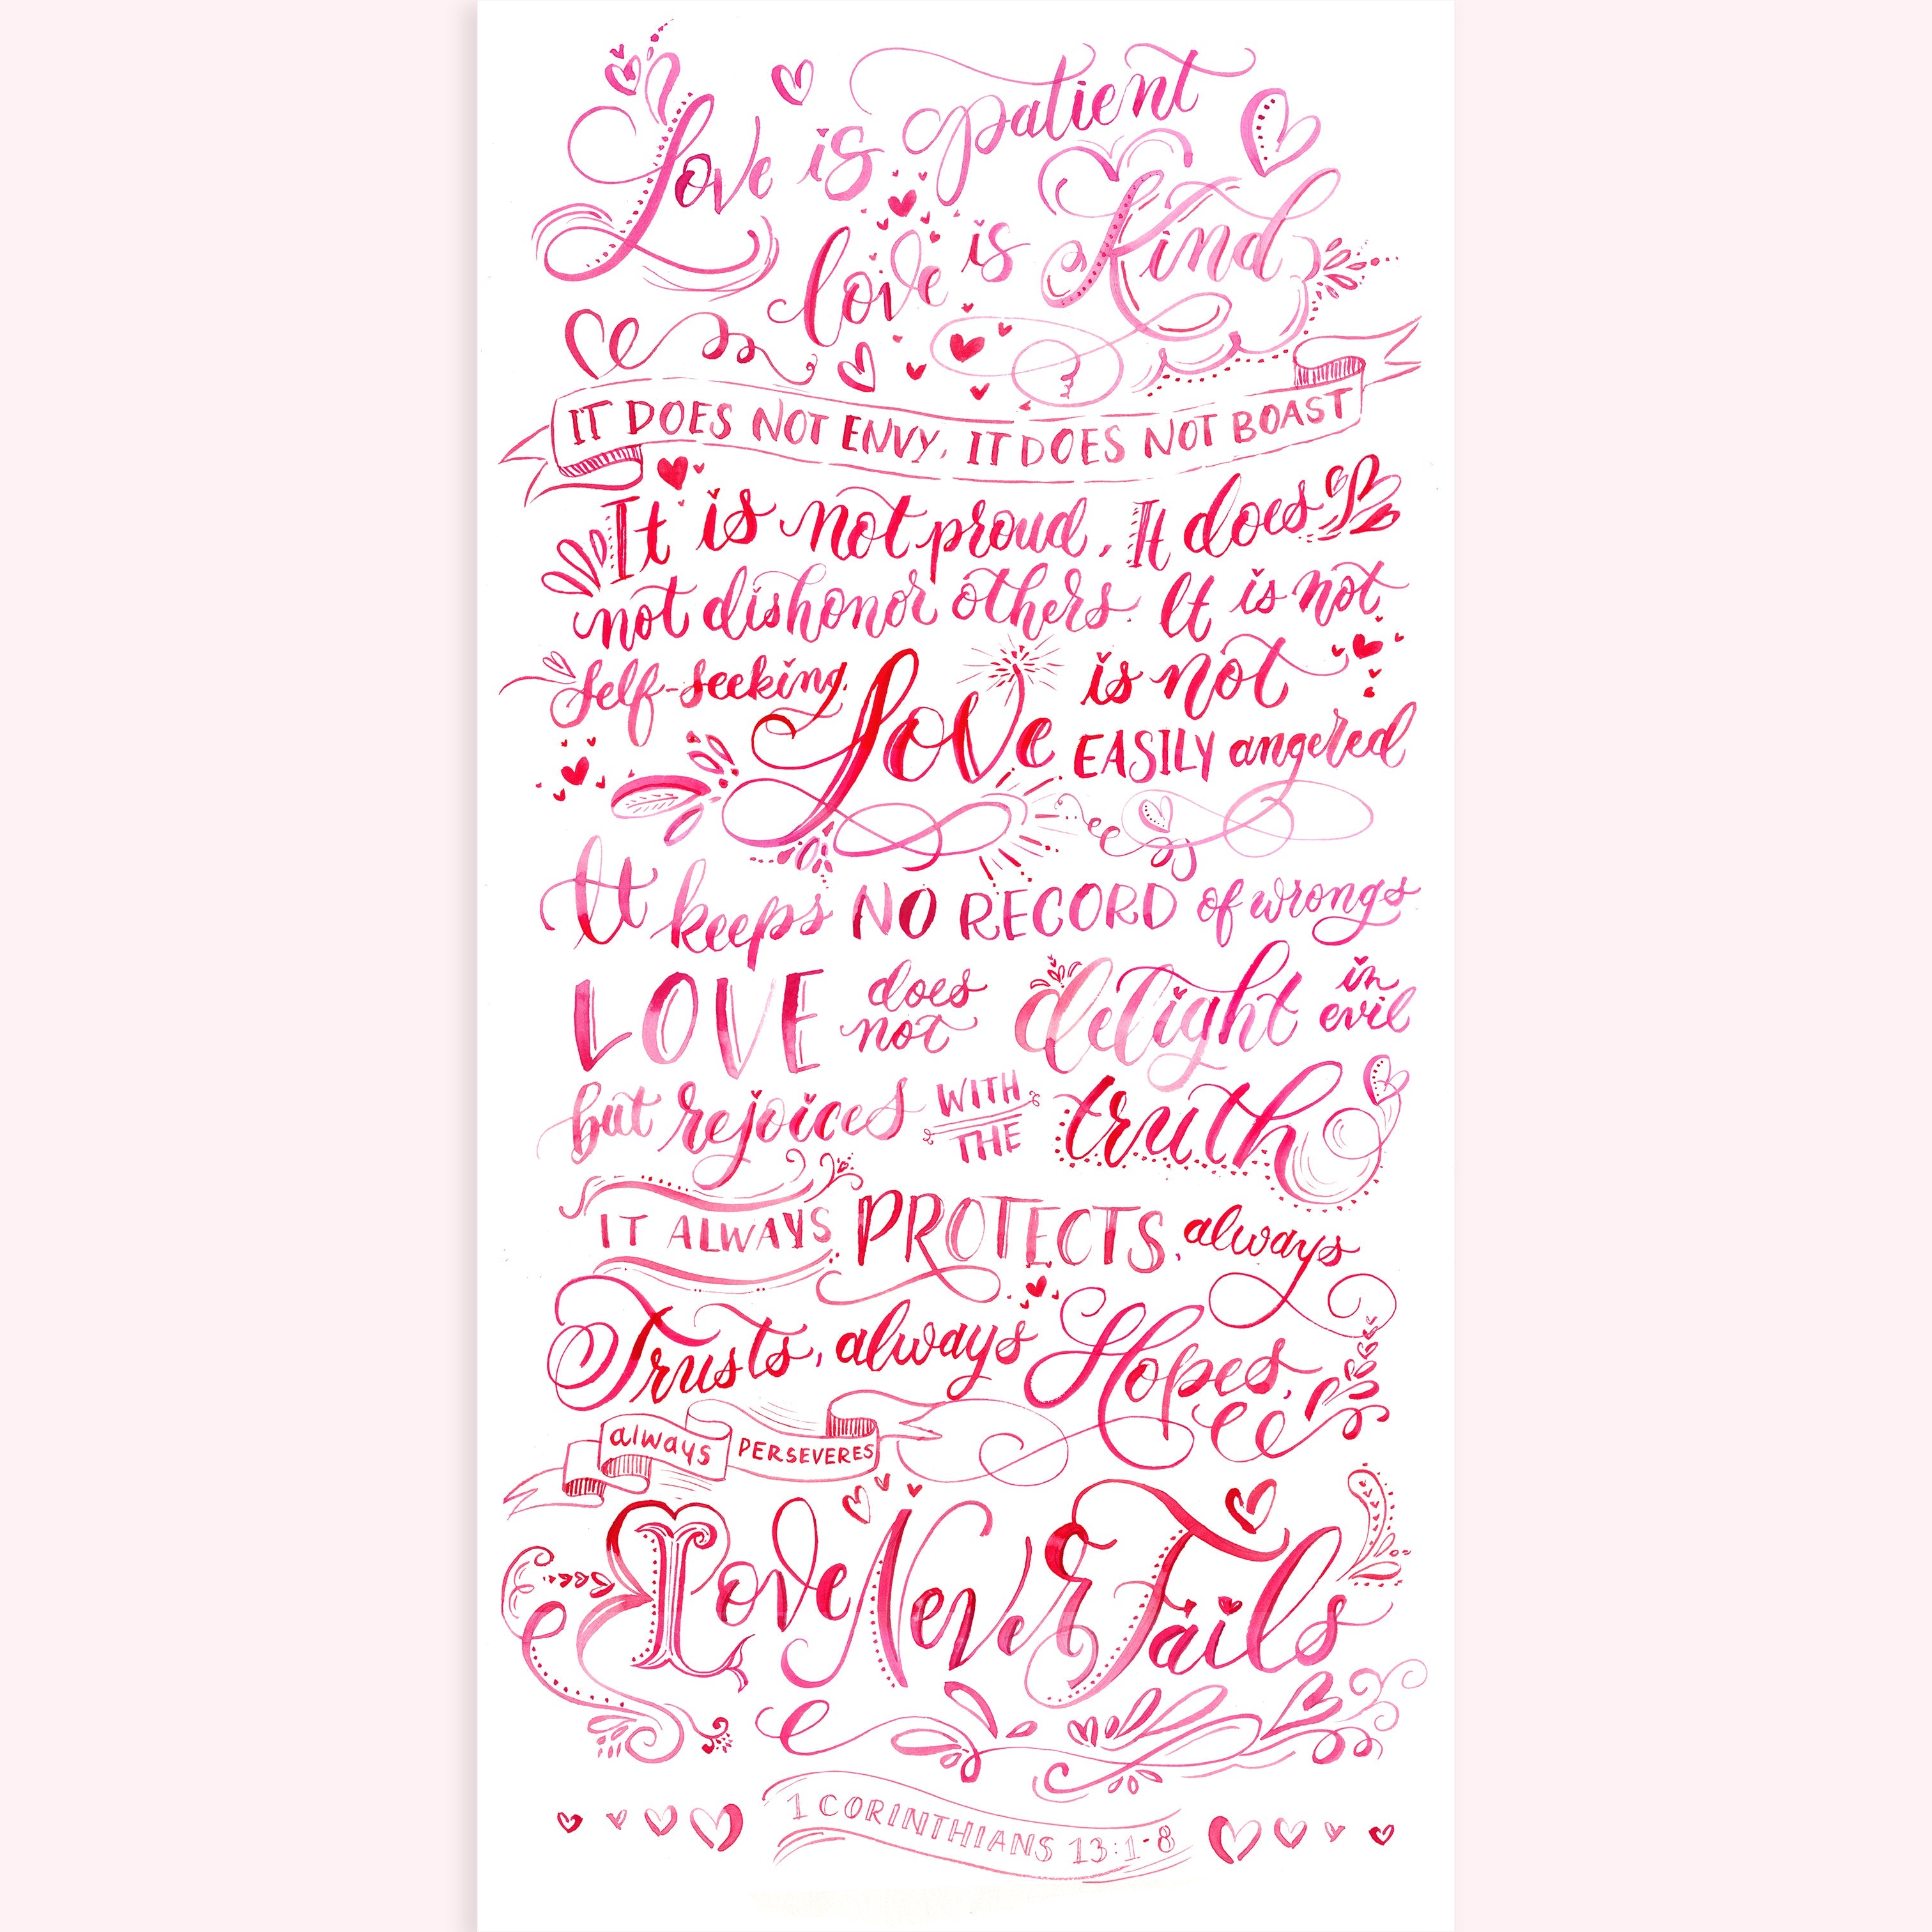 Love is patient
love is Kind
IT DOES NOT ENVY, IT DOES NOT BOAST
It is not proud, It does
not dishonor others. It is not
self-seeking. Love is not
EASILY angered
It keeps NO RECORD of wrongs
LOVE does not delight in evil
but rejoices WITH THE truth
IT ALWAYS PROTECTS, always
Trusts, always Hopes,
always PERSEVERES
Love Never Fails
1 CORINTHIANS 13:1-8